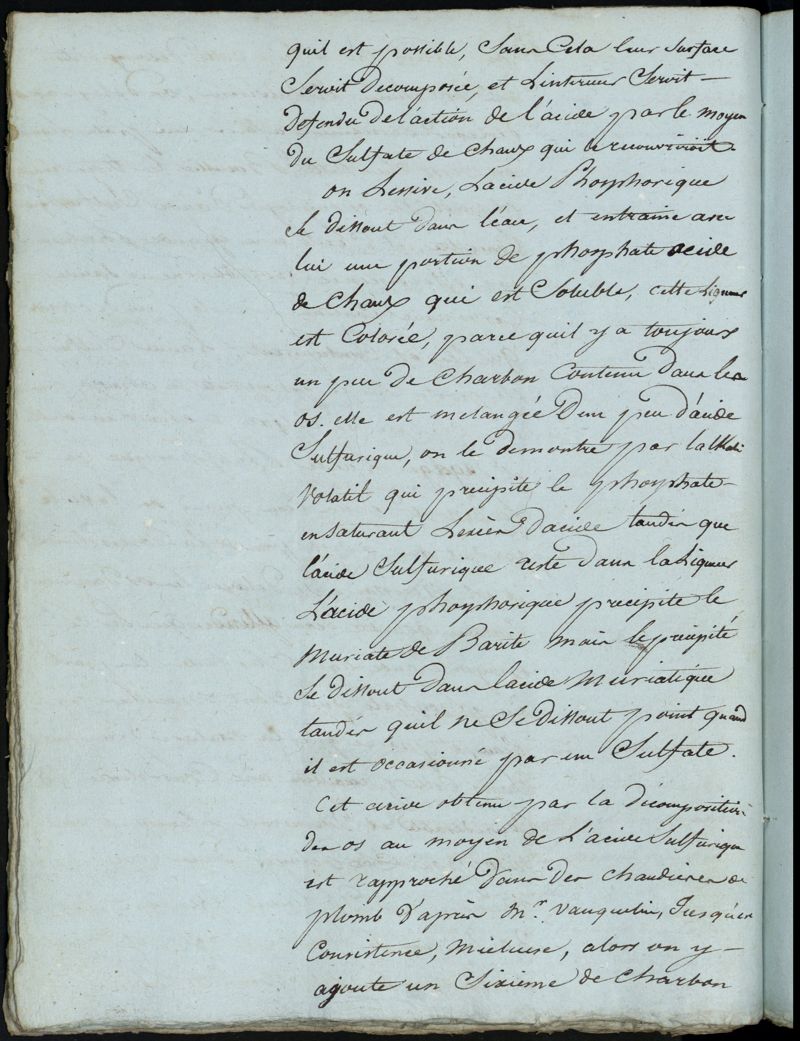 quil est possible, Sans Cela leur surface
Seroit Decomposée, et L'interieur Seroit
Defendu De l'action de l'acide par le moyen
Du Sulfate de Chaux qui le recouvriroit.
on Lessive, L'acide Phosphorique
Se dissout dans l'eau, et entraine avec
lui une portion de phosphate acide
de Chaux qui est Soluble, cette Liqueur
est Colorée, parce quil y a toujours
un peu de Charbon Contenu Dans les
os. elle est melangée D'un peu d'acide
Sulfurique, on le demontre par l'alkali
Volatil qui precipite le phosphate
en saturant L'excès D'acide tandis que
l'acide Sulfurique reste Dans la Liqueur
L'acide phosphorique precipite le
Muriate de Barite mais le precipité
Se dissout Dans l'acide Muriatique
tandis quil ne Se dissout point quand
il est occasionné par un Sulfate.
Cet acide obtenu par la décomposition
des os au moyen de L'acide Sulfurique
est rapproché dans des chaudieres de
plomb D'après Mr. Vauquelin, Jusqu'en
Consistence, Mielleuse, alors on y
ajoute un Sixieme de Charbon